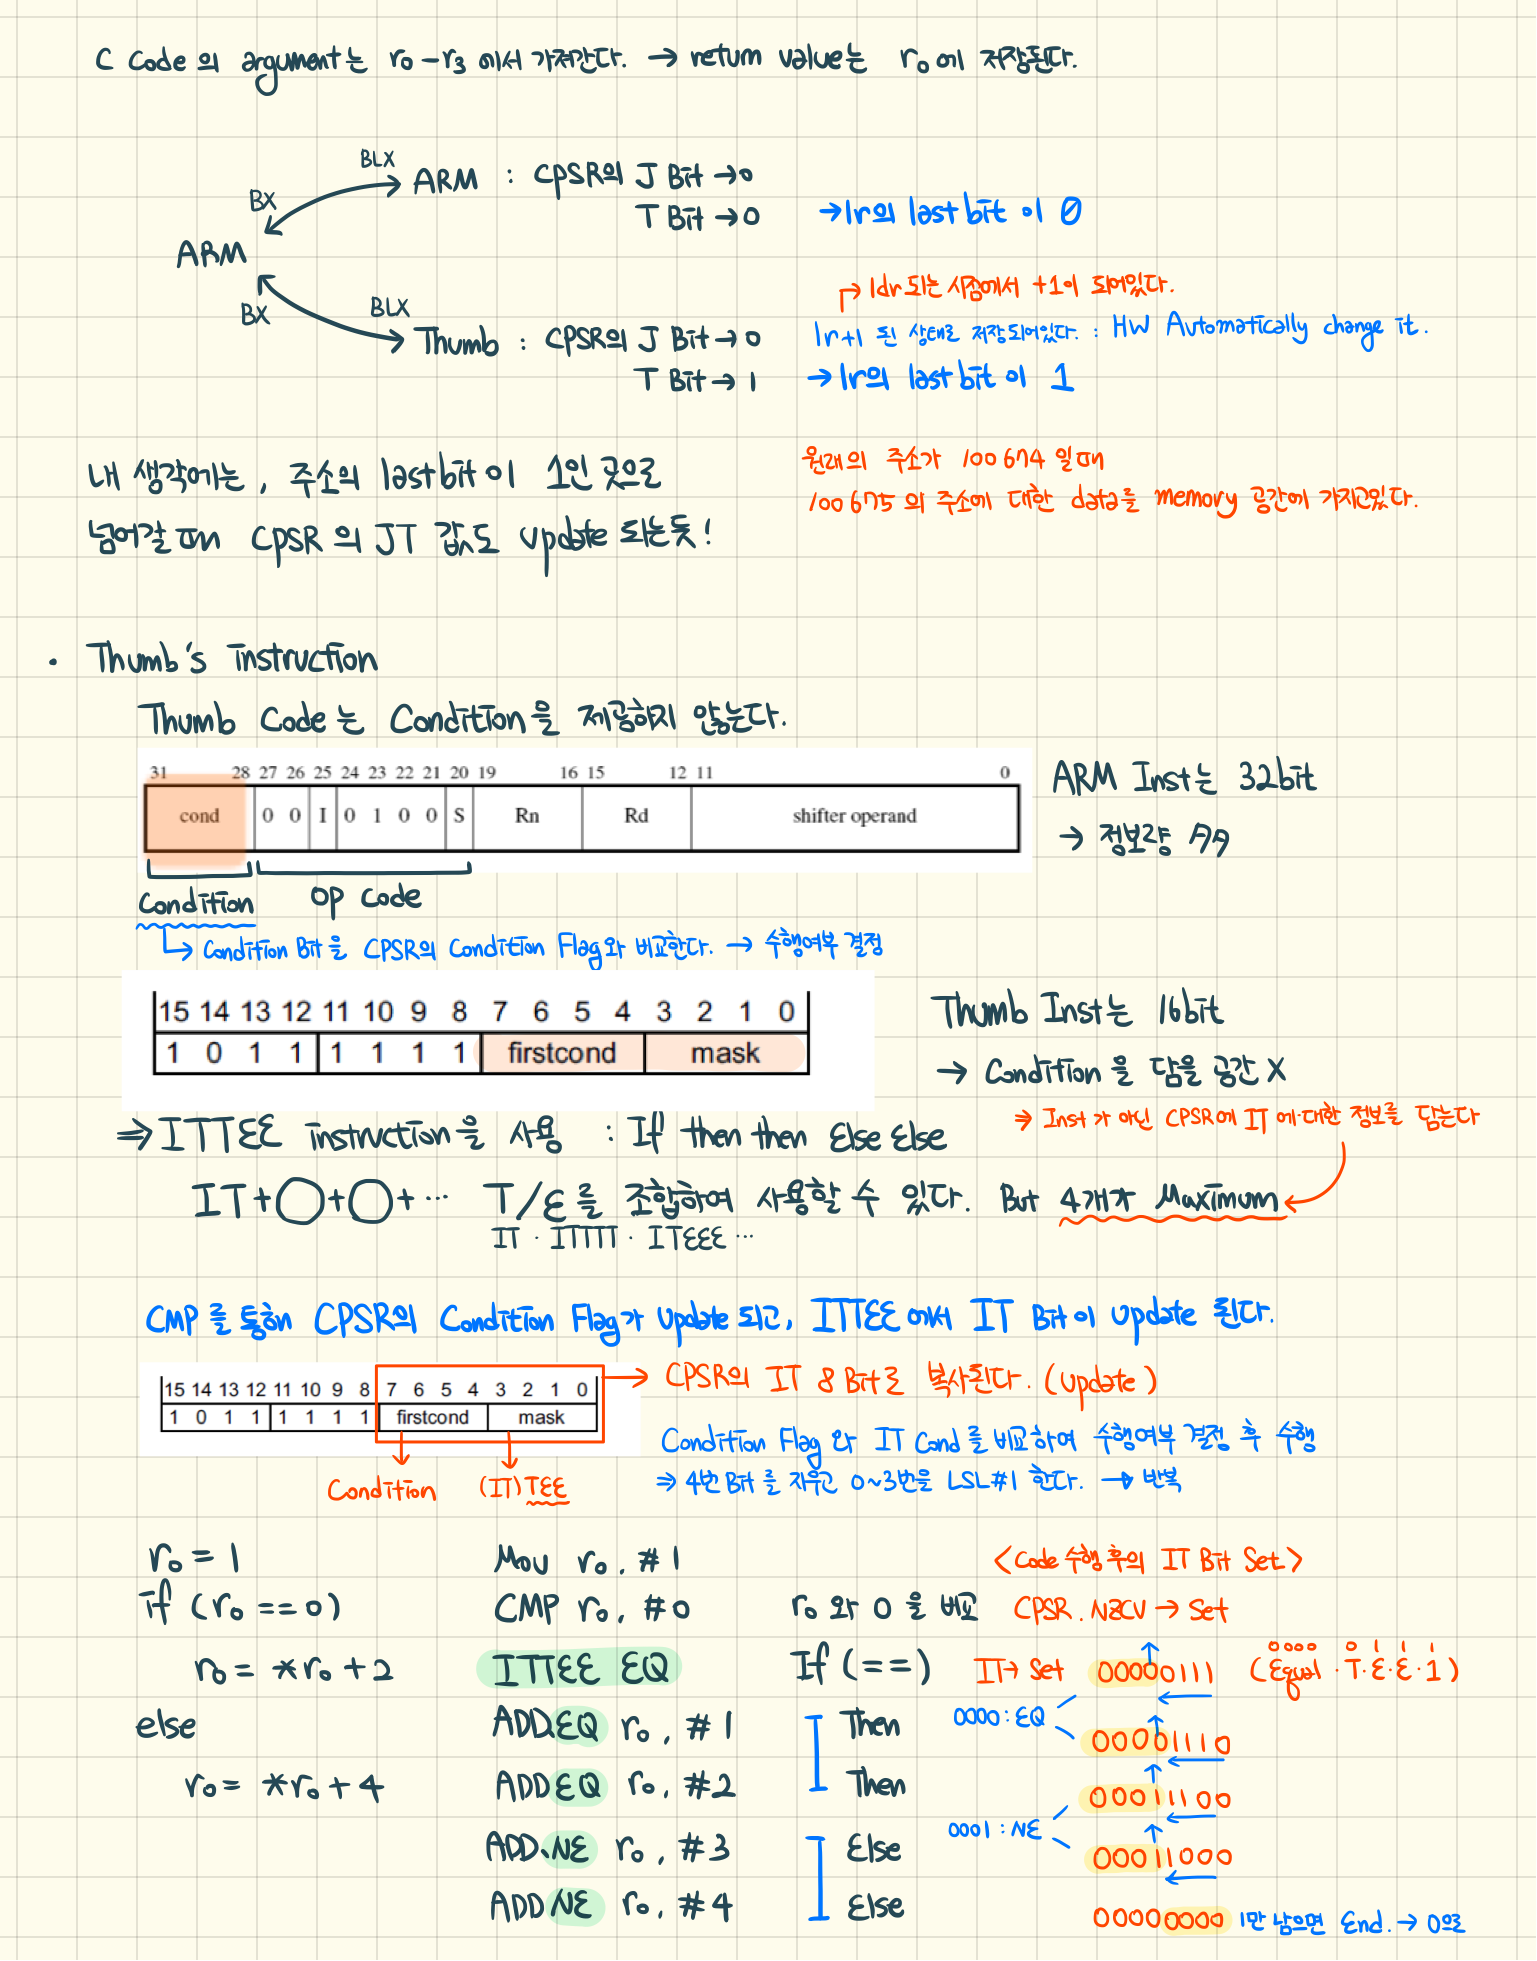 C Code의 argument는 r0-r3 에서 가져간다. → return value는 r0에 저장된다.
BLX
BX
ARM : CPSR의 J Bit → 0
T Bit → 0 → lr의 last bit 이 0
ARM
↱ ldr 되는 시점에서 +1이 되어있다.
BX
BLX
Thumb : CPSR의 J Bit → 0 lr+1 된 상태로 저장되어있다. : HW Automatically change it.
T Bit → 1 → lr의 last bit 이 1
내 생각에는, 주소의 last bit 이 1인 곳으로
넘어갈 때 CPSR 의 JT 값도 update 되는듯!
원래의 주소가 100674 일때
100675 의 주소에 대한 data를 memory 공간에 가지고있다.
· Thumb's instruction
Thumb Code는 Condition을 제공하지 않는다.
31 28 27 26 25 24 23 22 21 20 19 16 15 12 11 0
cond 0 0 I 0 1 0 0 S Rn Rd shifter operand
ARM Inst는 32bit
→ 정보량 多多
Condition
Op Code
↳ Condition Bit을 CPSR의 Condition Flag와 비교한다. → 수행여부 결정
15 14 13 12 11 10 9 8 7 6 5 4 3 2 1 0
1 0 1 1 1 1 1 1 firstcond mask
Thumb Inst는 16bit
→ Condition을 담을 공간 X
⇒ Inst가 아닌 CPSR에 IT에 대한 정보를 담는다
⇒ ITTEE instruction을 사용 : If then then Else Else
IT+○+○+… T/E를 조합하여 사용할 수 있다. But 4개가 Maximum
IT · ITTTT · ITEEE …
CMP를 통해 CPSR의 Condition Flag가 update 되고, ITTEE에서 IT Bit이 update 된다.
15 14 13 12 11 10 9 8 7 6 5 4 3 2 1 0
1 0 1 1 1 1 1 1 firstcond mask
→ CPSR의 IT 8 Bit로 복사된다. (update)
Condition
(IT)TEE
Condition Flag 와 IT Cond를 비교하여 수행여부 결정 후 수행
⇒ 4번 Bit를 지우고 0~3번을 LSL#1 한다. → 반복
r0 = 1
if (r0 == 0)
r0 = *r0 + 2
else
r0 = *r0 + 4
Mov r0, #1
CMP r0, #0
ITTEE EQ
ADD.EQ r0, #1
ADD EQ r0, #2
ADD.NE r0, #3
ADD NE r0, #4
r0 와 0 을 비교
If (==)
Then
Then
Else
Else
<Code 수행 후의 IT Bit Set>
CPSR.NZCV → Set
0000 0 1 1 1
IT → Set 00000111 (Equal · T · E · E · 1)
0000 : EQ
00001110
00011100
0001 : NE
00011000
00000000 1만 남으면 End. → 0으로